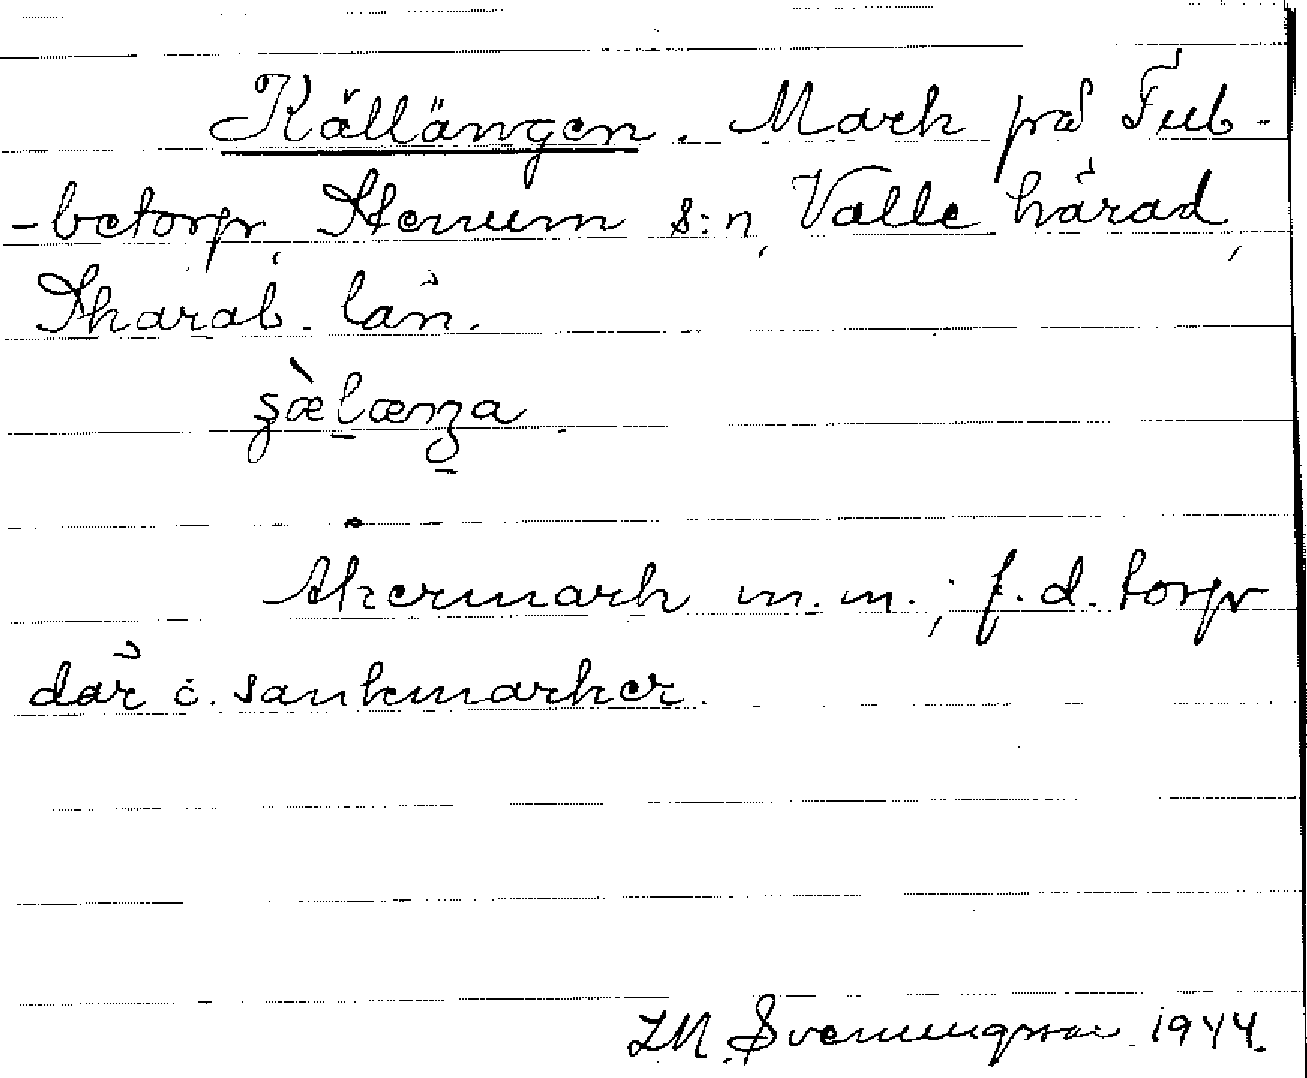 Källängen. Mark på Tub-
-betorp, Stenum s:n, Valle härad,
Skarab. län.
Åkermark m.m.; f.d. torp
där i sankmarker.
Svenungsson 1944.